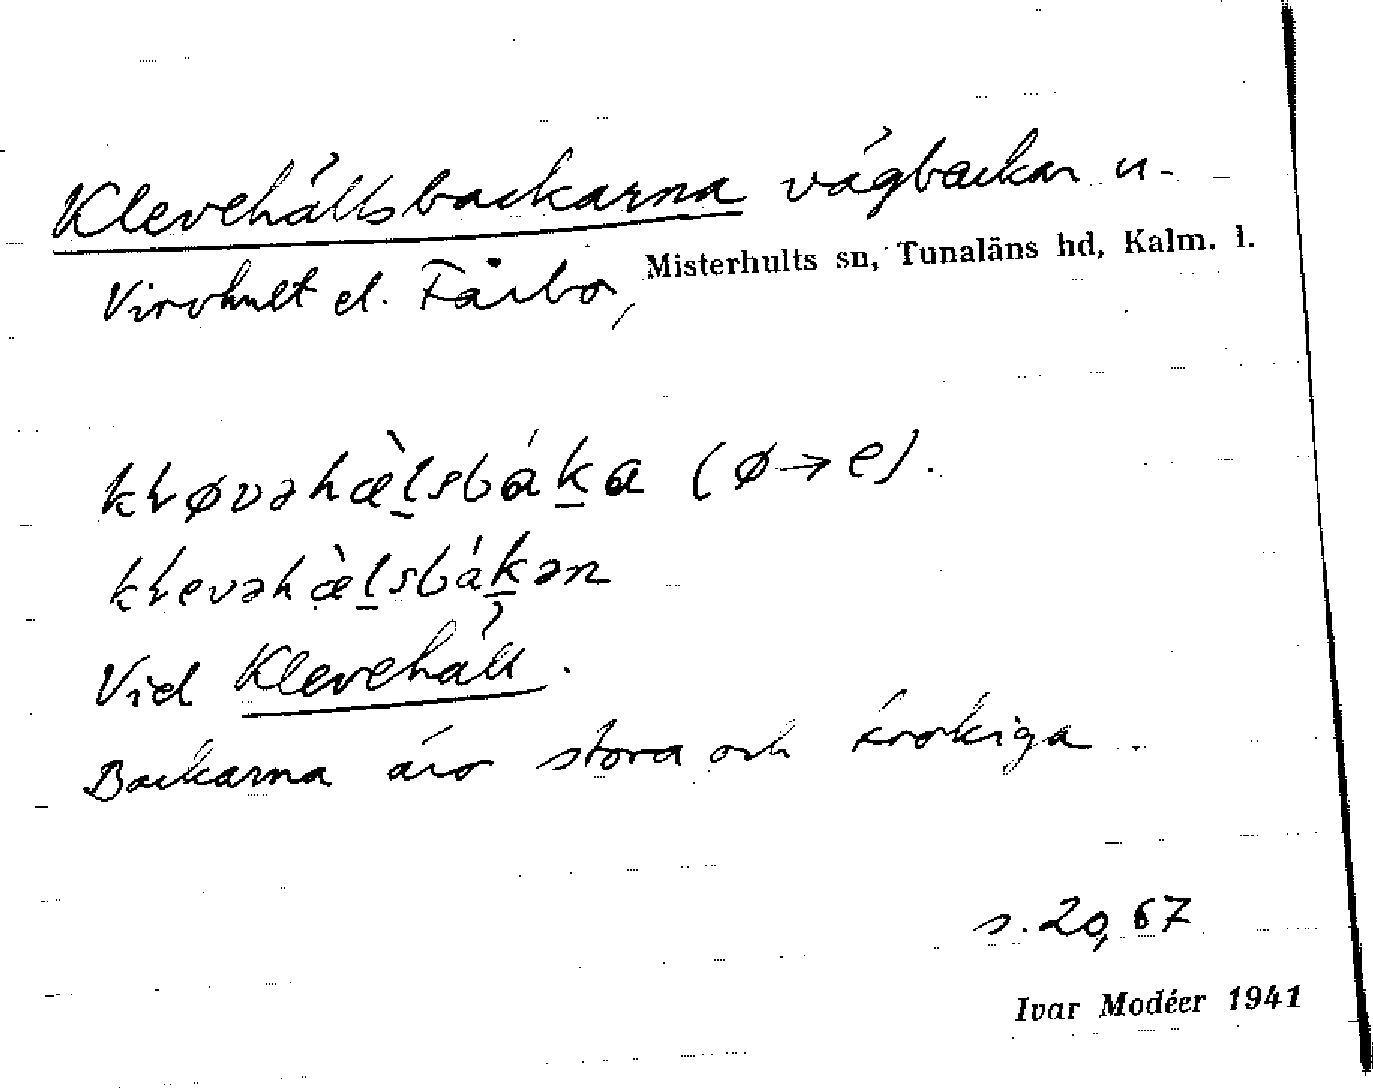 Klevehällsbackarna vägbackar u.
Virohult el. Fårbo, Misterhults sn, Tunaläns hd, Kalm. l.
kløvəhæ̀l̠sbák̠a (ø→e).
klevəhæ̀l̠sbák̠ən
Vid Klevehäll.
Backarna äro stora och krokiga.
s. 20, 67
Ivar Modéer 1941